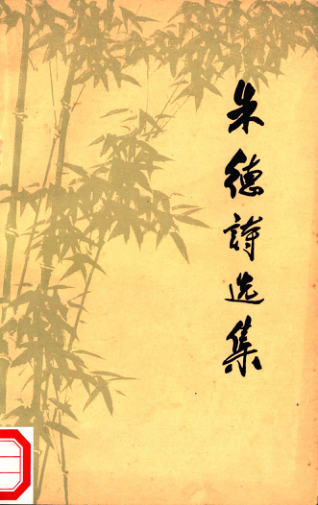 朱德詩选集